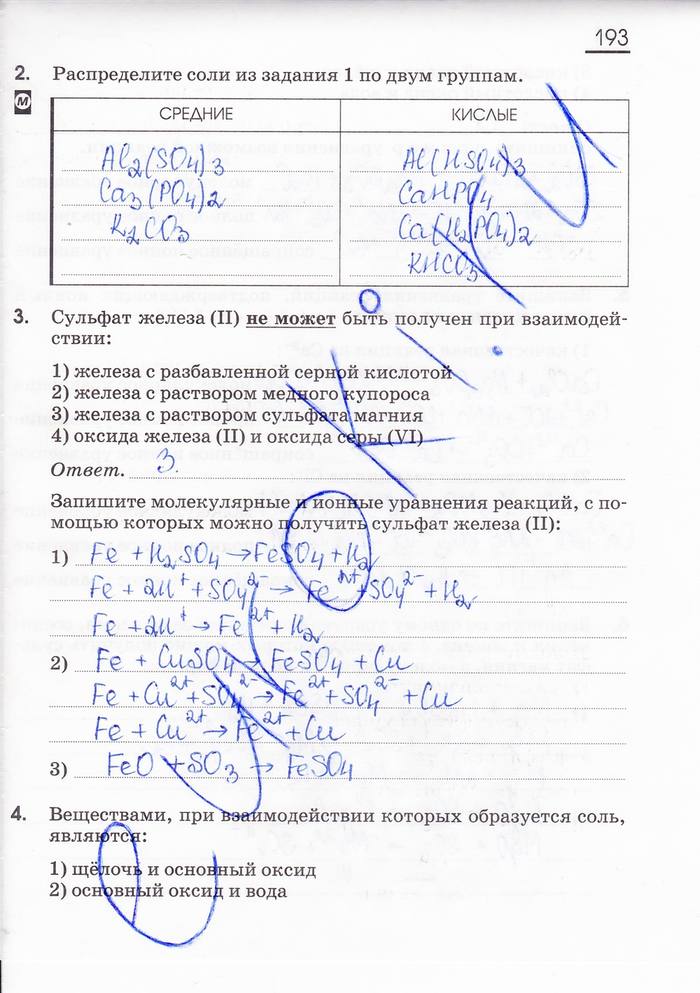 193
2. Распределите соли из задания 1 по двум группам.
М
СРЕДНИЕ КИСЛЫЕ
Al2(SO4)3 Al(HSO4)3
Ca3(PO4)2 CaHPO4
K2CO3 Ca(H2PO4)2
KHCO3
3. Сульфат железа (II) не может быть получен при взаимодей-
ствии:
1) железа с разбавленной серной кислотой
2) железа с раствором медного купороса
3) железа с раствором сульфата магния
4) оксида железа (II) и оксида серы (VI)
Ответ. 3.
Запишите молекулярные и ионные уравнения реакций, с по-
мощью которых можно получить сульфат железа (II):
1) Fe + H2SO4 → FeSO4 + H2
Fe + 2H⁺ + SO4²⁻ → Fe²⁺ + SO4²⁻ + H2
Fe + 2H⁺ → Fe²⁺ + H2
2) Fe + CuSO4 → FeSO4 + Cu
Fe + Cu²⁺ + SO4²⁻ → Fe²⁺ + SO4²⁻ + Cu
Fe + Cu²⁺ → Fe²⁺ + Cu
3) FeO + SO3 → FeSO4
4. Веществами, при взаимодействии которых образуется соль,
являются:
1) щёлочь и основный оксид
2) основный оксид и вода